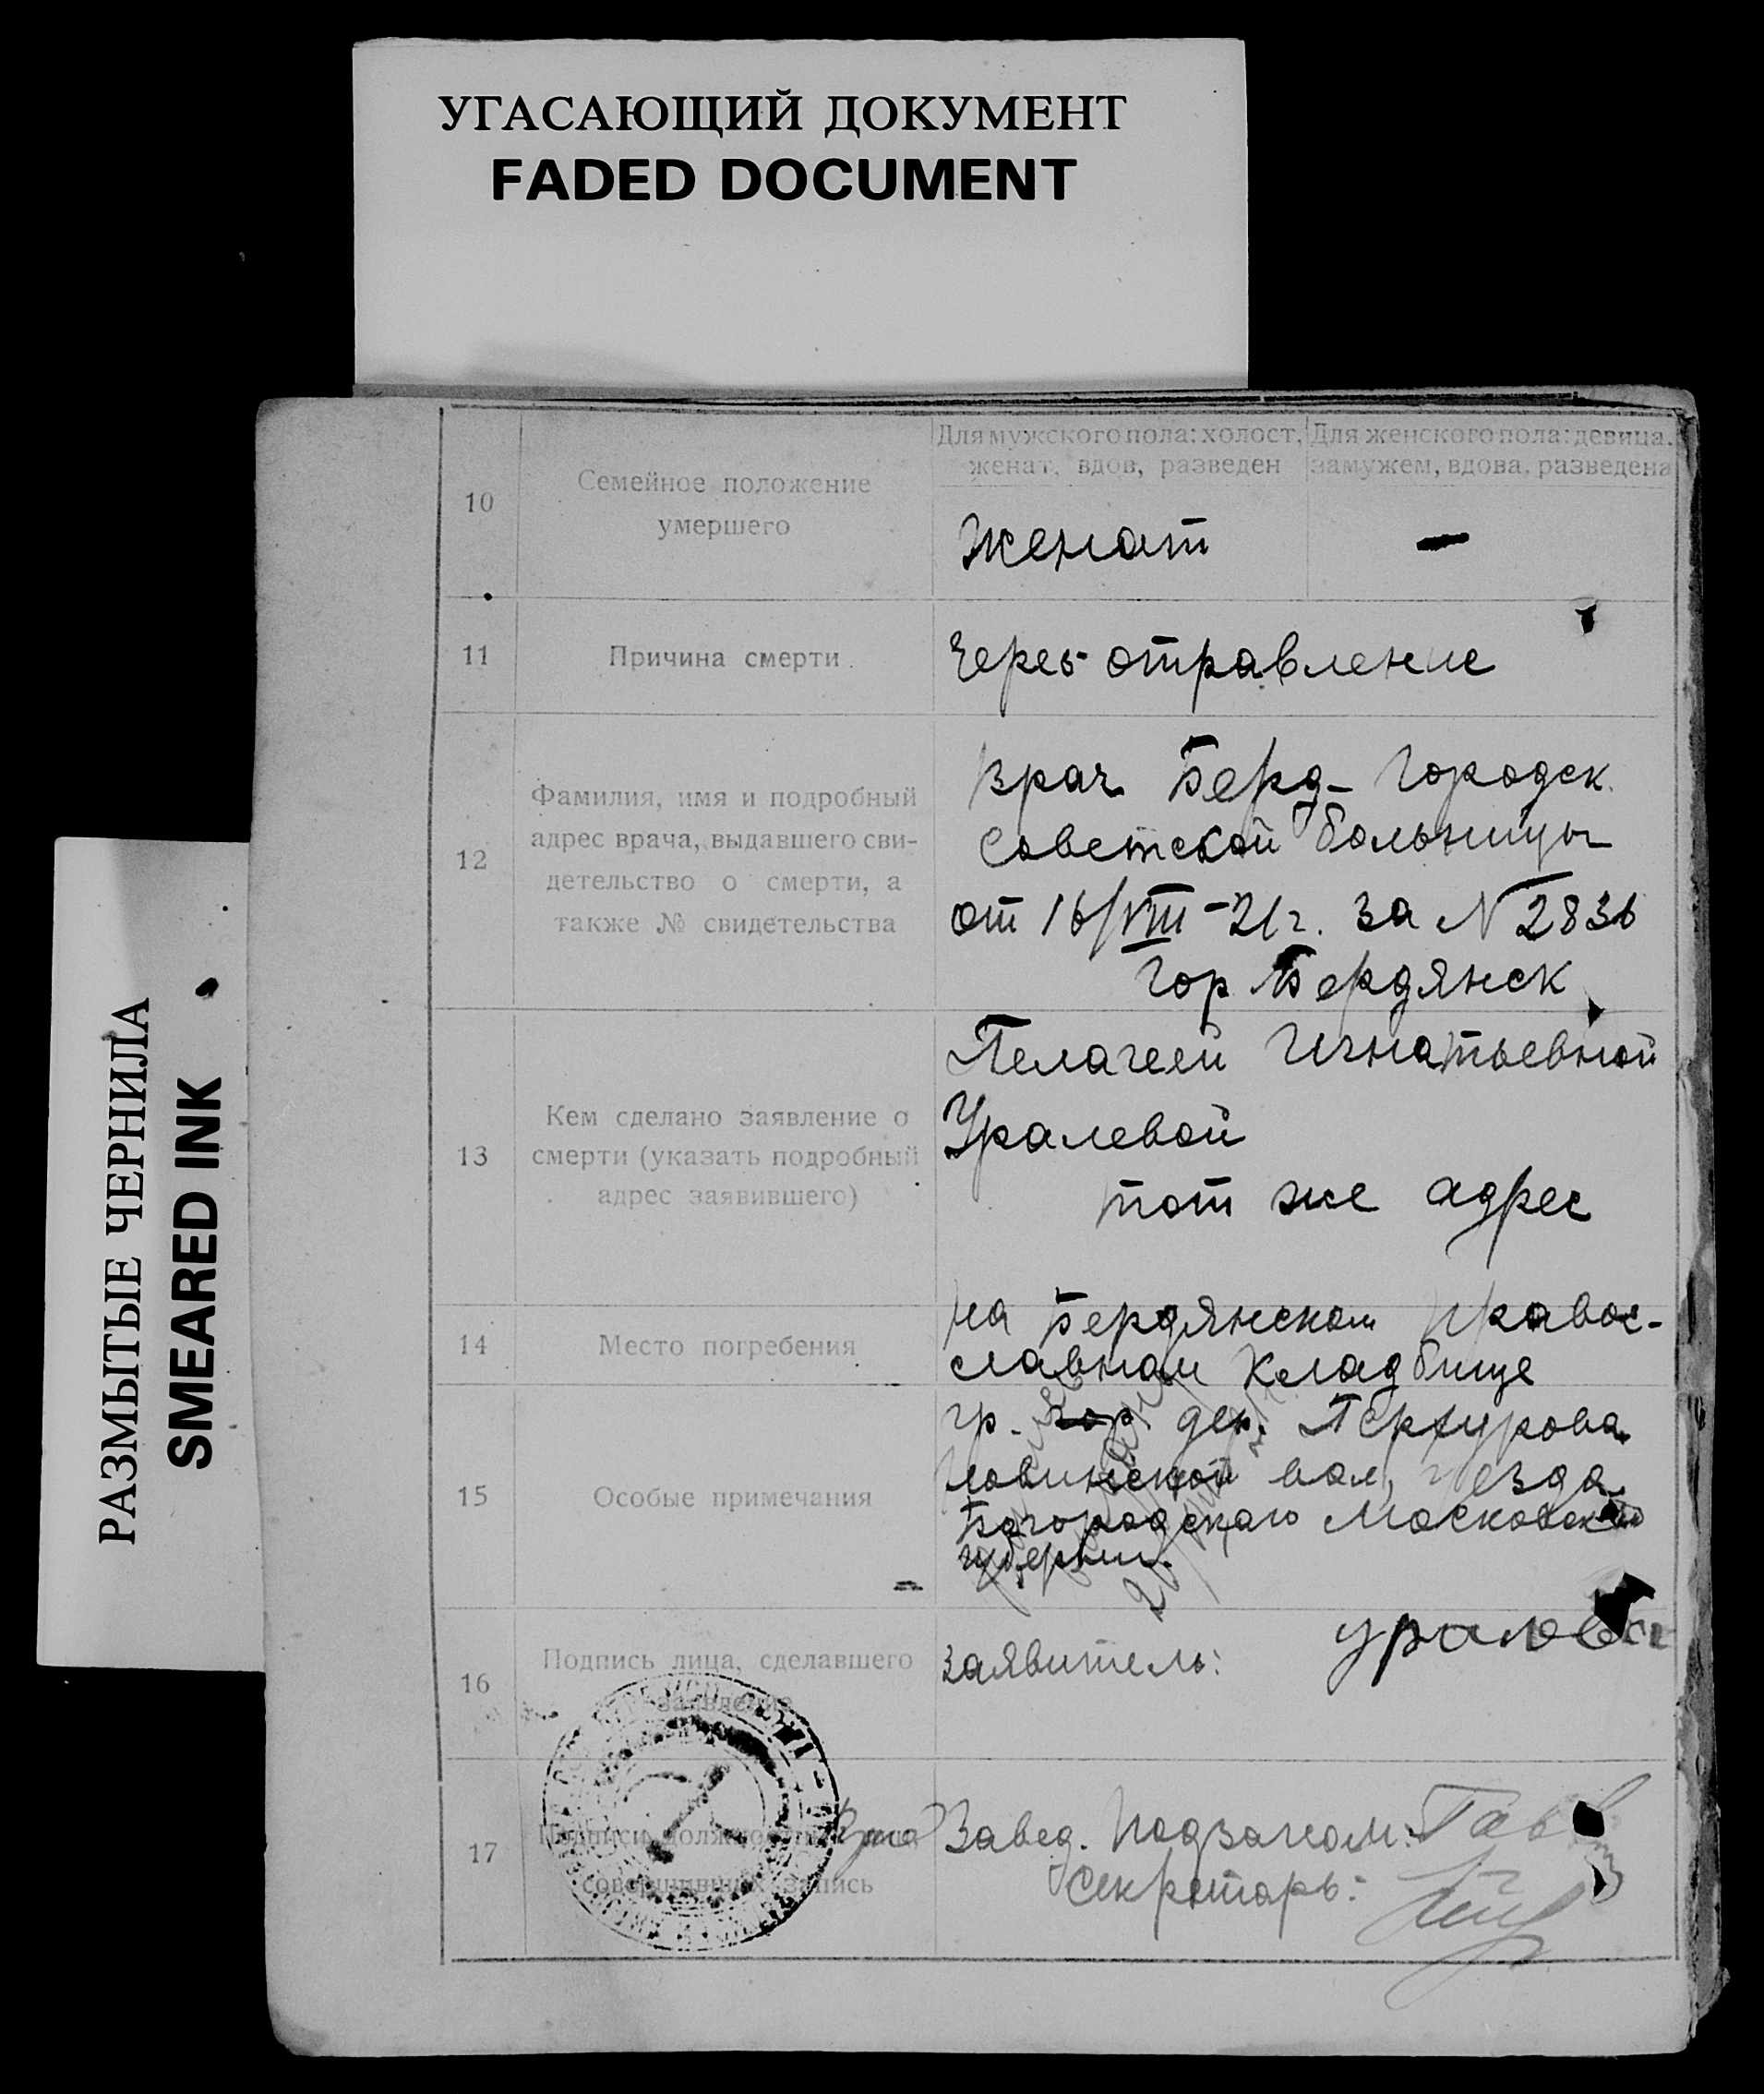 УГАСАЮЩИЙ ДОКУМЕНТ
FADED DOCUMENT
РАЗМЫТЫЕ ЧЕРНИЛА
SMEARED INK
10
Семейное положение
умершего
Для мужского пола: холост,
женат, вдов, разведен
Для женского пола: девица,
замужем, вдова, разведена
Женат
—
11
Причина смерти
Через отравление
12
Фамилия, имя и подробный
адрес врача, выдавшего сви-
детельство о смерти, а
также № свидетельства
врач Берд- Городск.
Советской больницы
от 16/VIII-21г. за N 2836
Гор Бердянск
13
Кем сделано заявление о
смерти (указать подробный
адрес заявившего)
Пелагеей Игнатьевной
Уралевой
тот же адрес
14
Место погребения
на Бердянском правос-
славном кладбище
15
Особые примечания
гр. гор. дер.
вол, уезда
Богородскаго Московской
губернии.
16
Подпись лица, сделавшего
заявление
заявитель:
17
Подписи должностных лиц,
совершивших запись
Завед. Подзагсом:
Секретарь: